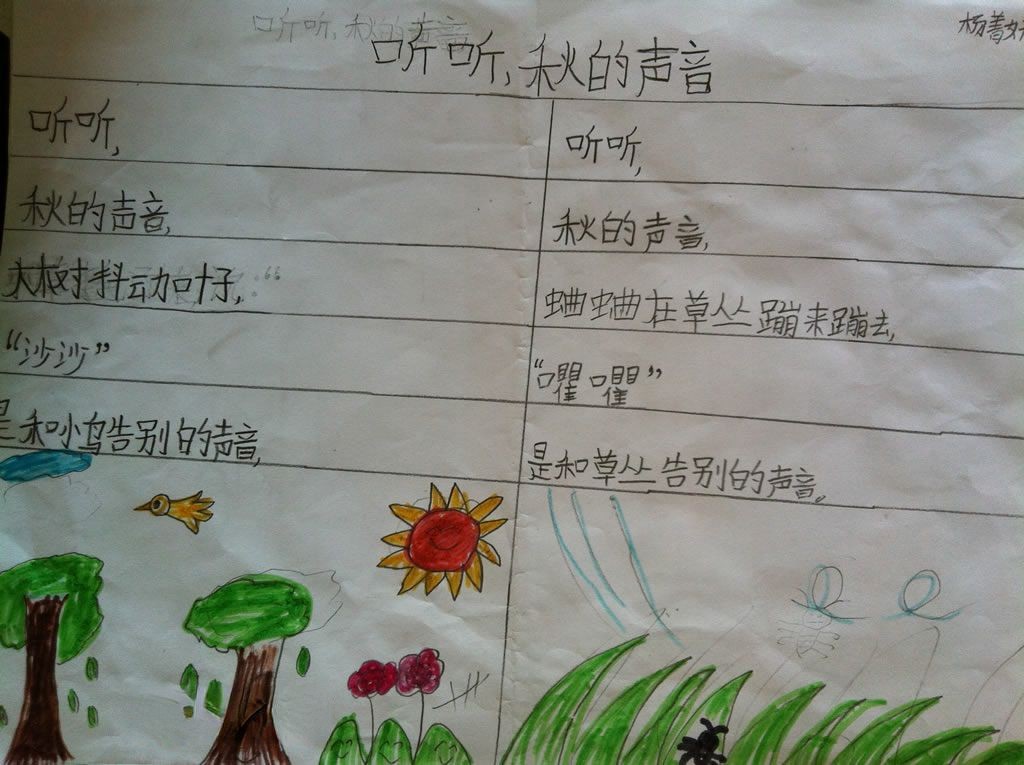 听听,秋的声音
听听,秋的声音
杨
听听,
秋的声音,
大树抖动叶子,
“沙沙”
是和小鸟告别的声音,
听听,
秋的声音,
蛐蛐在草丛蹦来蹦去,
“㘗㘗”
是和草丛告别的声音。